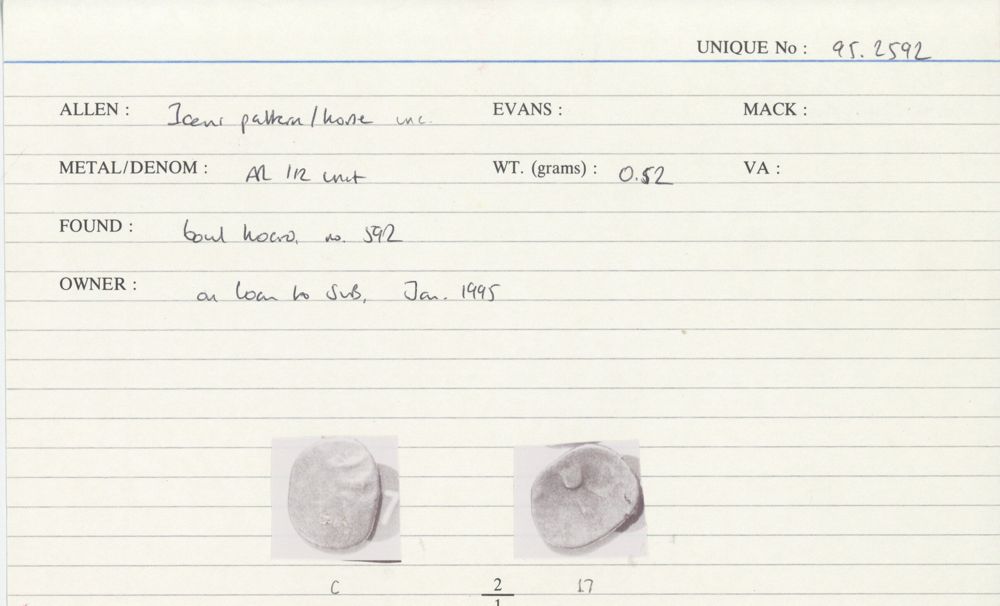 UNIQUE No : 95.2592
ALLEN : Iceni pattern/horse unc. EVANS : MACK :
METAL/DENOM : AR 1/2 unit WT. (grams) : 0.52 VA :
FOUND : bowl hoard, no. 592
OWNER : on loan to SUB, Jan. 1995
7
C 2/1 17